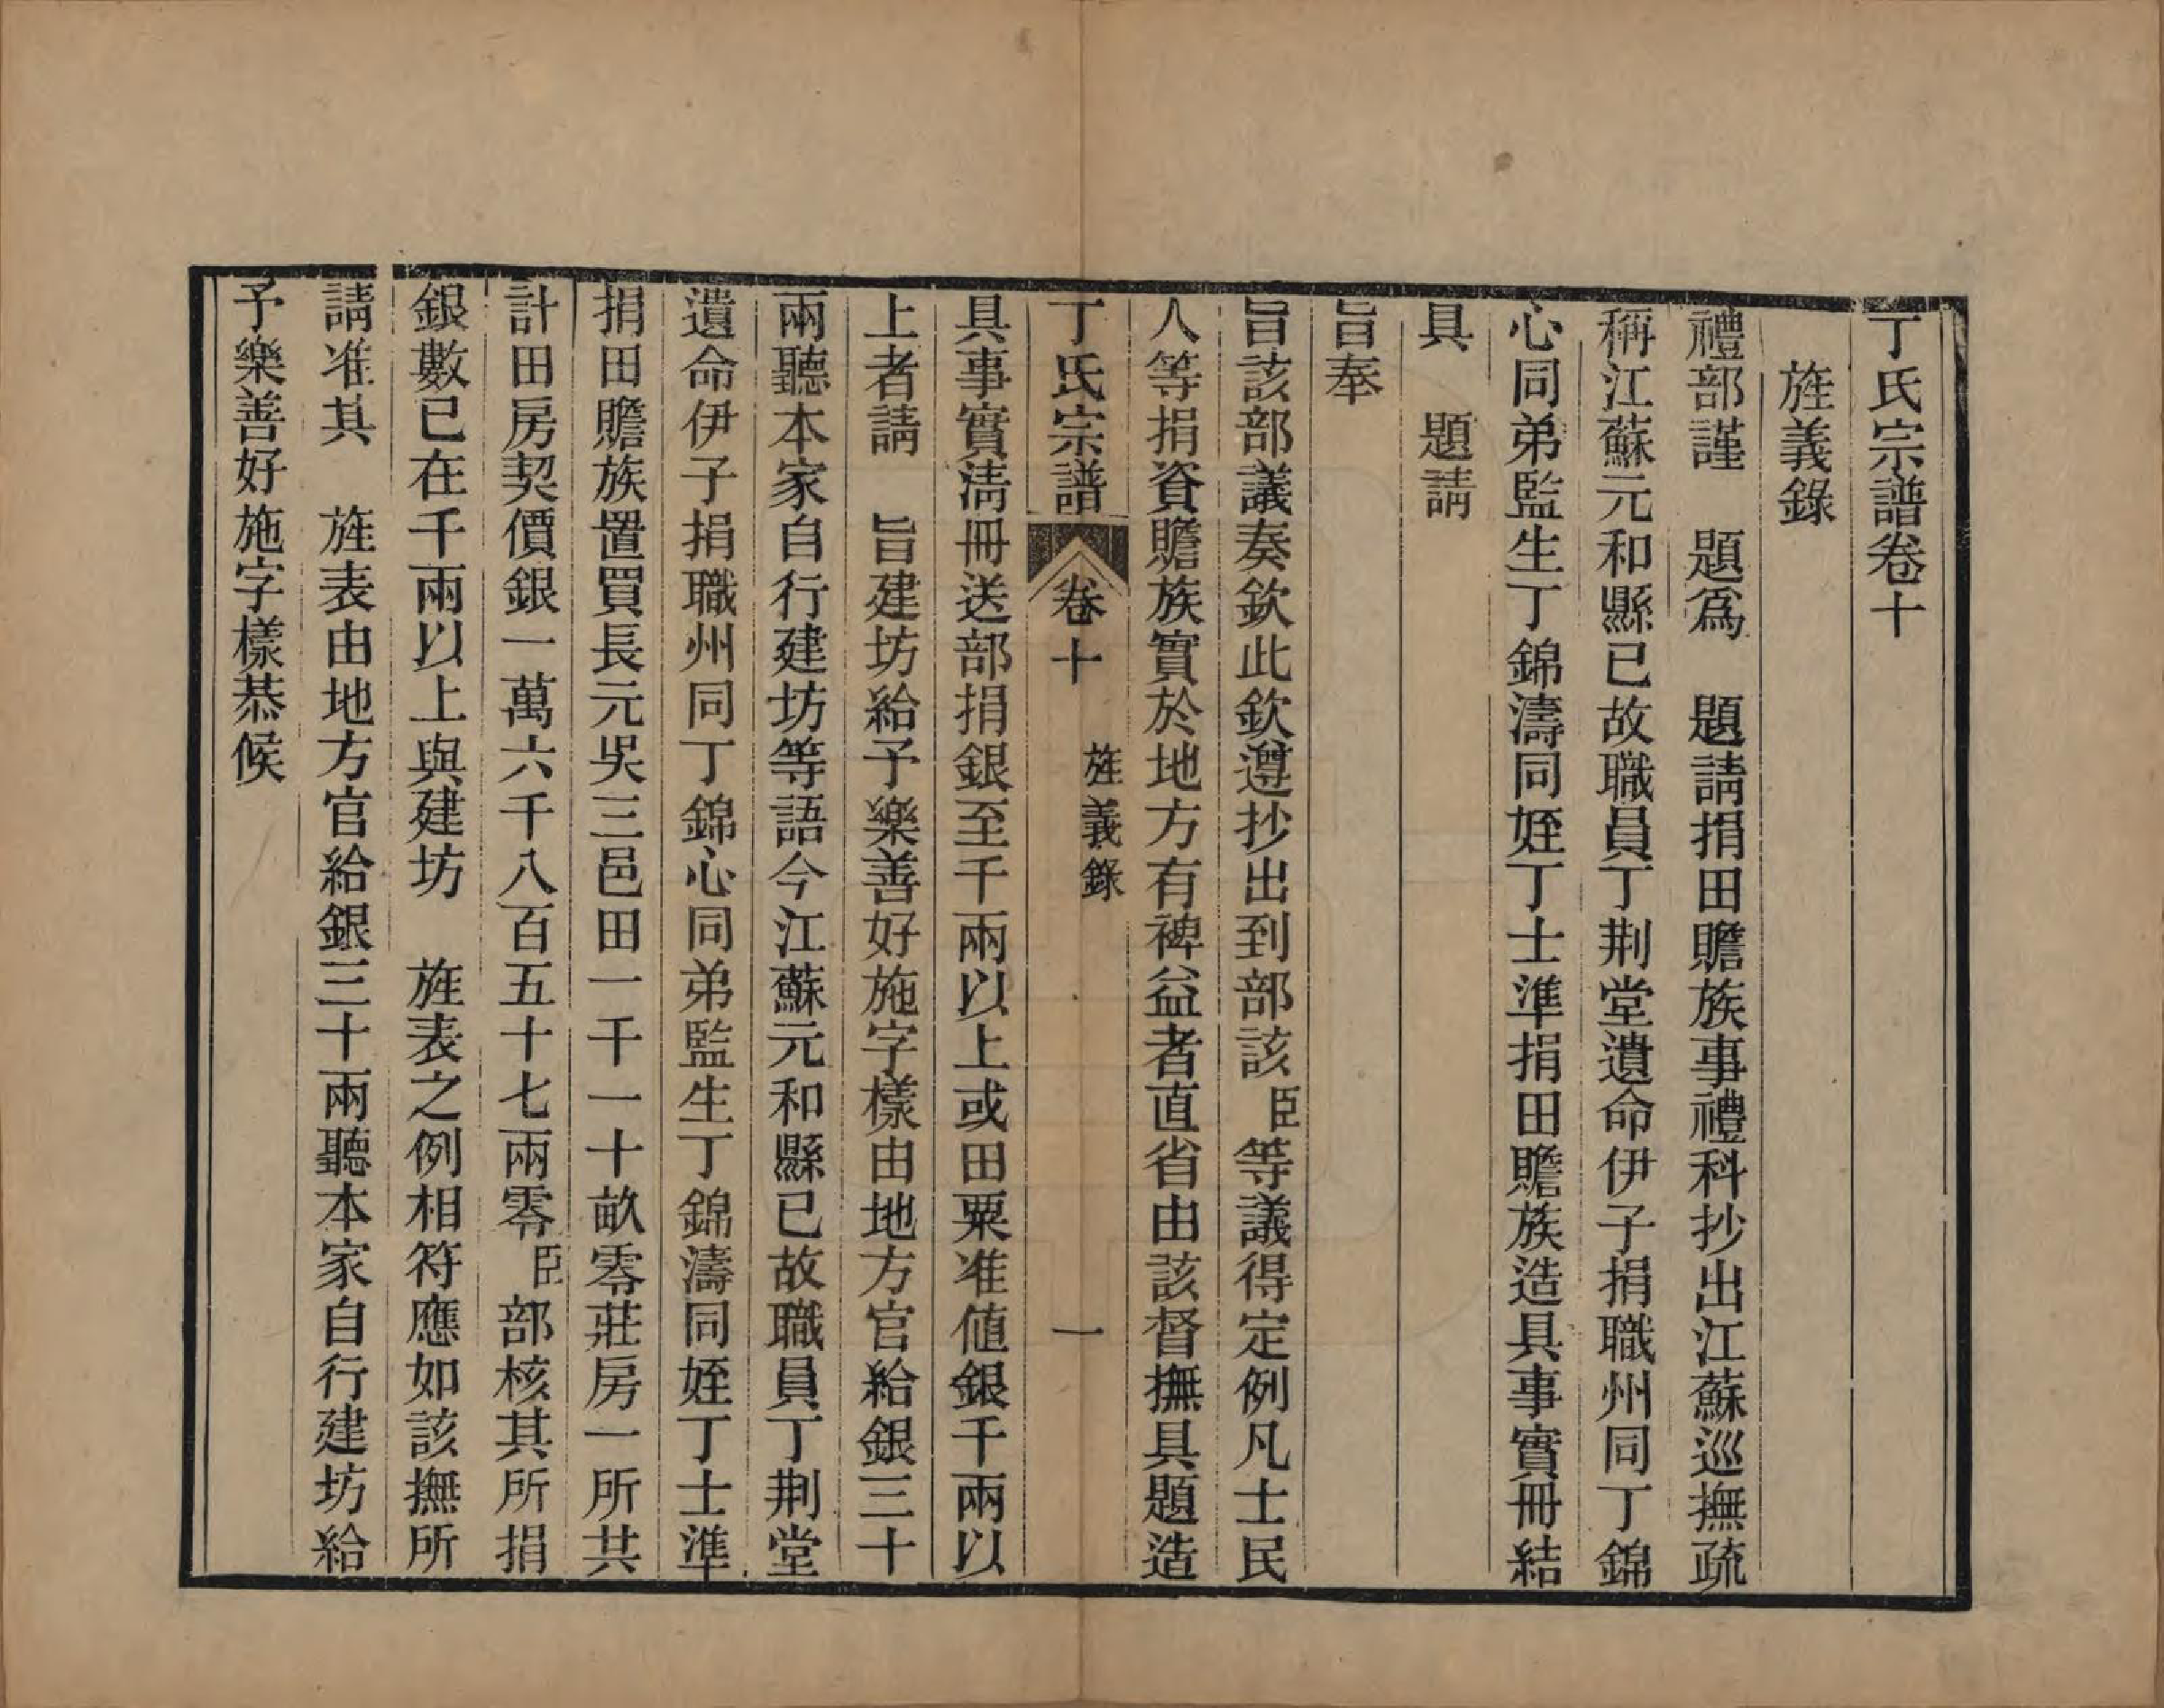 丁氏宗譜卷十
旌義錄
禮部謹　題爲　題請捐田贍族事禮科抄出江蘇巡撫疏
稱江蘇元和縣已故職員丁荆堂遺命伊子捐職州同丁錦
心同弟監生丁錦濤同姪丁士準捐田贍族造具事實冊結
具　題請
旨奉
旨該部議奏欽此欽遵抄出到部該臣等議得定例凡士民
人等捐資贍族實於地方有裨益者直省由該督撫具題造
丁氏宗譜　卷十　旌義錄　一
具事實清冊送部捐銀至千兩以上或田粟准值銀千兩以
上者請　旨建坊給予樂善好施字樣由地方官給銀三十
兩聽本家自行建坊等語今江蘇元和縣已故職員丁荆堂
遺命伊子捐職州同丁錦心同弟監生丁錦濤同姪丁士準
捐田贍族置買長元吳三邑田一千一十畝零莊房一所共
計田房契價銀一萬六千八百五十七兩零臣部核其所捐
銀數已在千兩以上與建坊　旌表之例相符應如該撫所
請准其　旌表由地方官給銀三十兩聽本家自行建坊給
予樂善好施字樣恭候